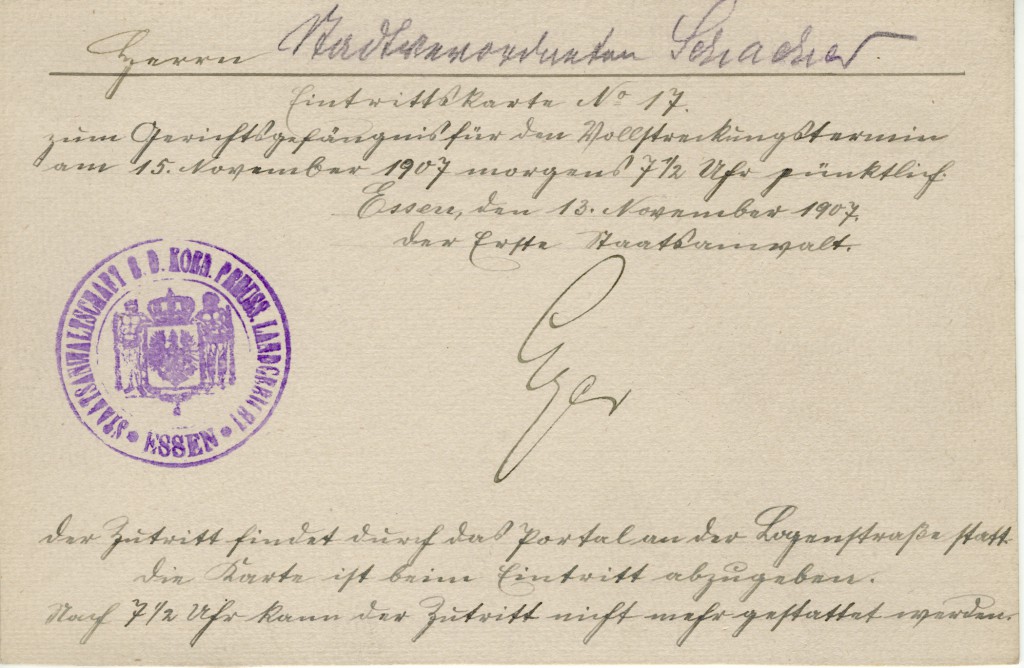 Herrn Stadtverordneten Schacher
Eintrittskarte No 17.
zum Gerichtsgefängnis für den Vollstreckungstermin
am 15. November 1907 morgens 7 1/2 Uhr pünktlich.
Essen, den 13. November 1907.
Der Erste Staatsanwalt.
STAATSANWALTSCHAFT B. D. KOEN. PREUSS. LANDGERICHT
* ESSEN *
Der Zutritt findet durch das Portal an der Logenstraße statt.
Die Karte ist beim Eintritt abzugeben.
Nach 7 1/2 Uhr kann der Zutritt nicht mehr gestattet werden.